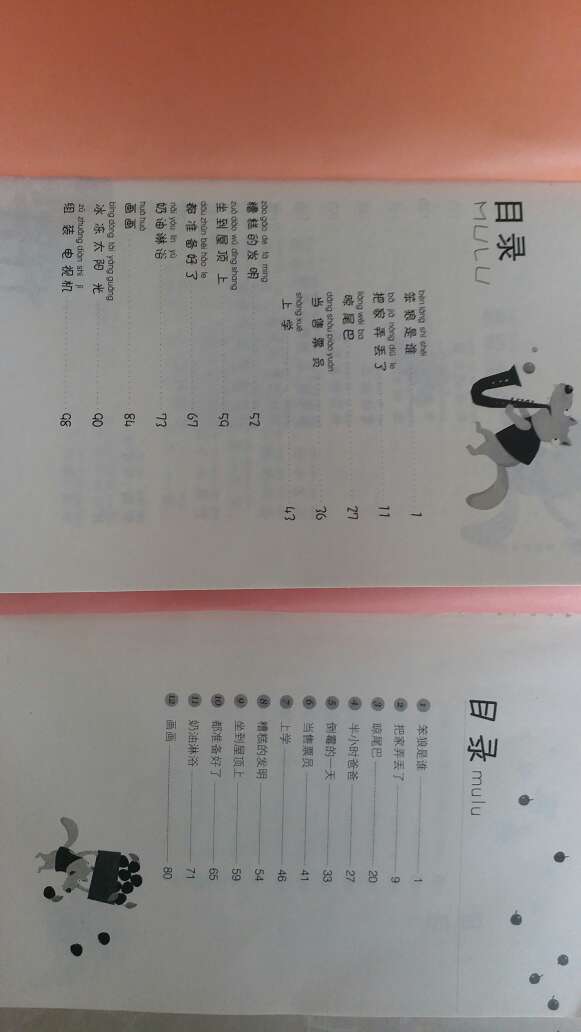 目录
MULU
bèn láng shì shéi
笨狼是谁 1
bǎ jiā nòng diū le
把家弄丢了 11
liàng wěi ba
晾尾巴 27
dāng shòu piào yuán
当售票员 36
shàng xué
上学 43
zāo gāo de fā míng
糟糕的发明 52
zuò dào wū dǐng shang
坐到屋顶上 59
dōu zhǔn bèi hǎo le
都准备好了 67
nǎi yóu lín yù
奶油淋浴 73
huà huà
画画 84
bīng dòng tài yáng guāng
冰冻太阳光 90
zǔ zhuāng diàn shì jī
组装电视机 98
目录 mulu
1 笨狼是谁 1
2 把家弄丢了 9
3 晾尾巴 20
4 半小时爸爸 27
5 倒霉的一天 33
6 当售票员 41
7 上学 46
8 糟糕的发明 54
9 坐到屋顶上 59
10 都准备好了 65
11 奶油淋浴 71
12 画画 80